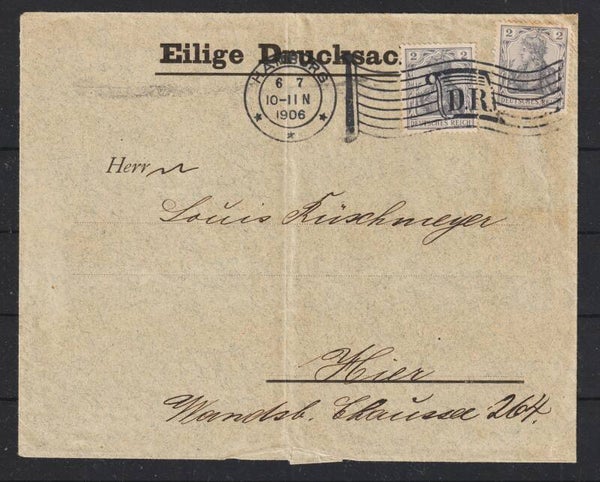 Eilige Drucksac
HAMBURG
6 7
10-11 N
1906
D.R.
2 2
DEUTSCHES REICH
2 2
DEUTSCHES R
Herrn
Louis Küschmeyer
Hier
Wandsb. Chaussee 264.